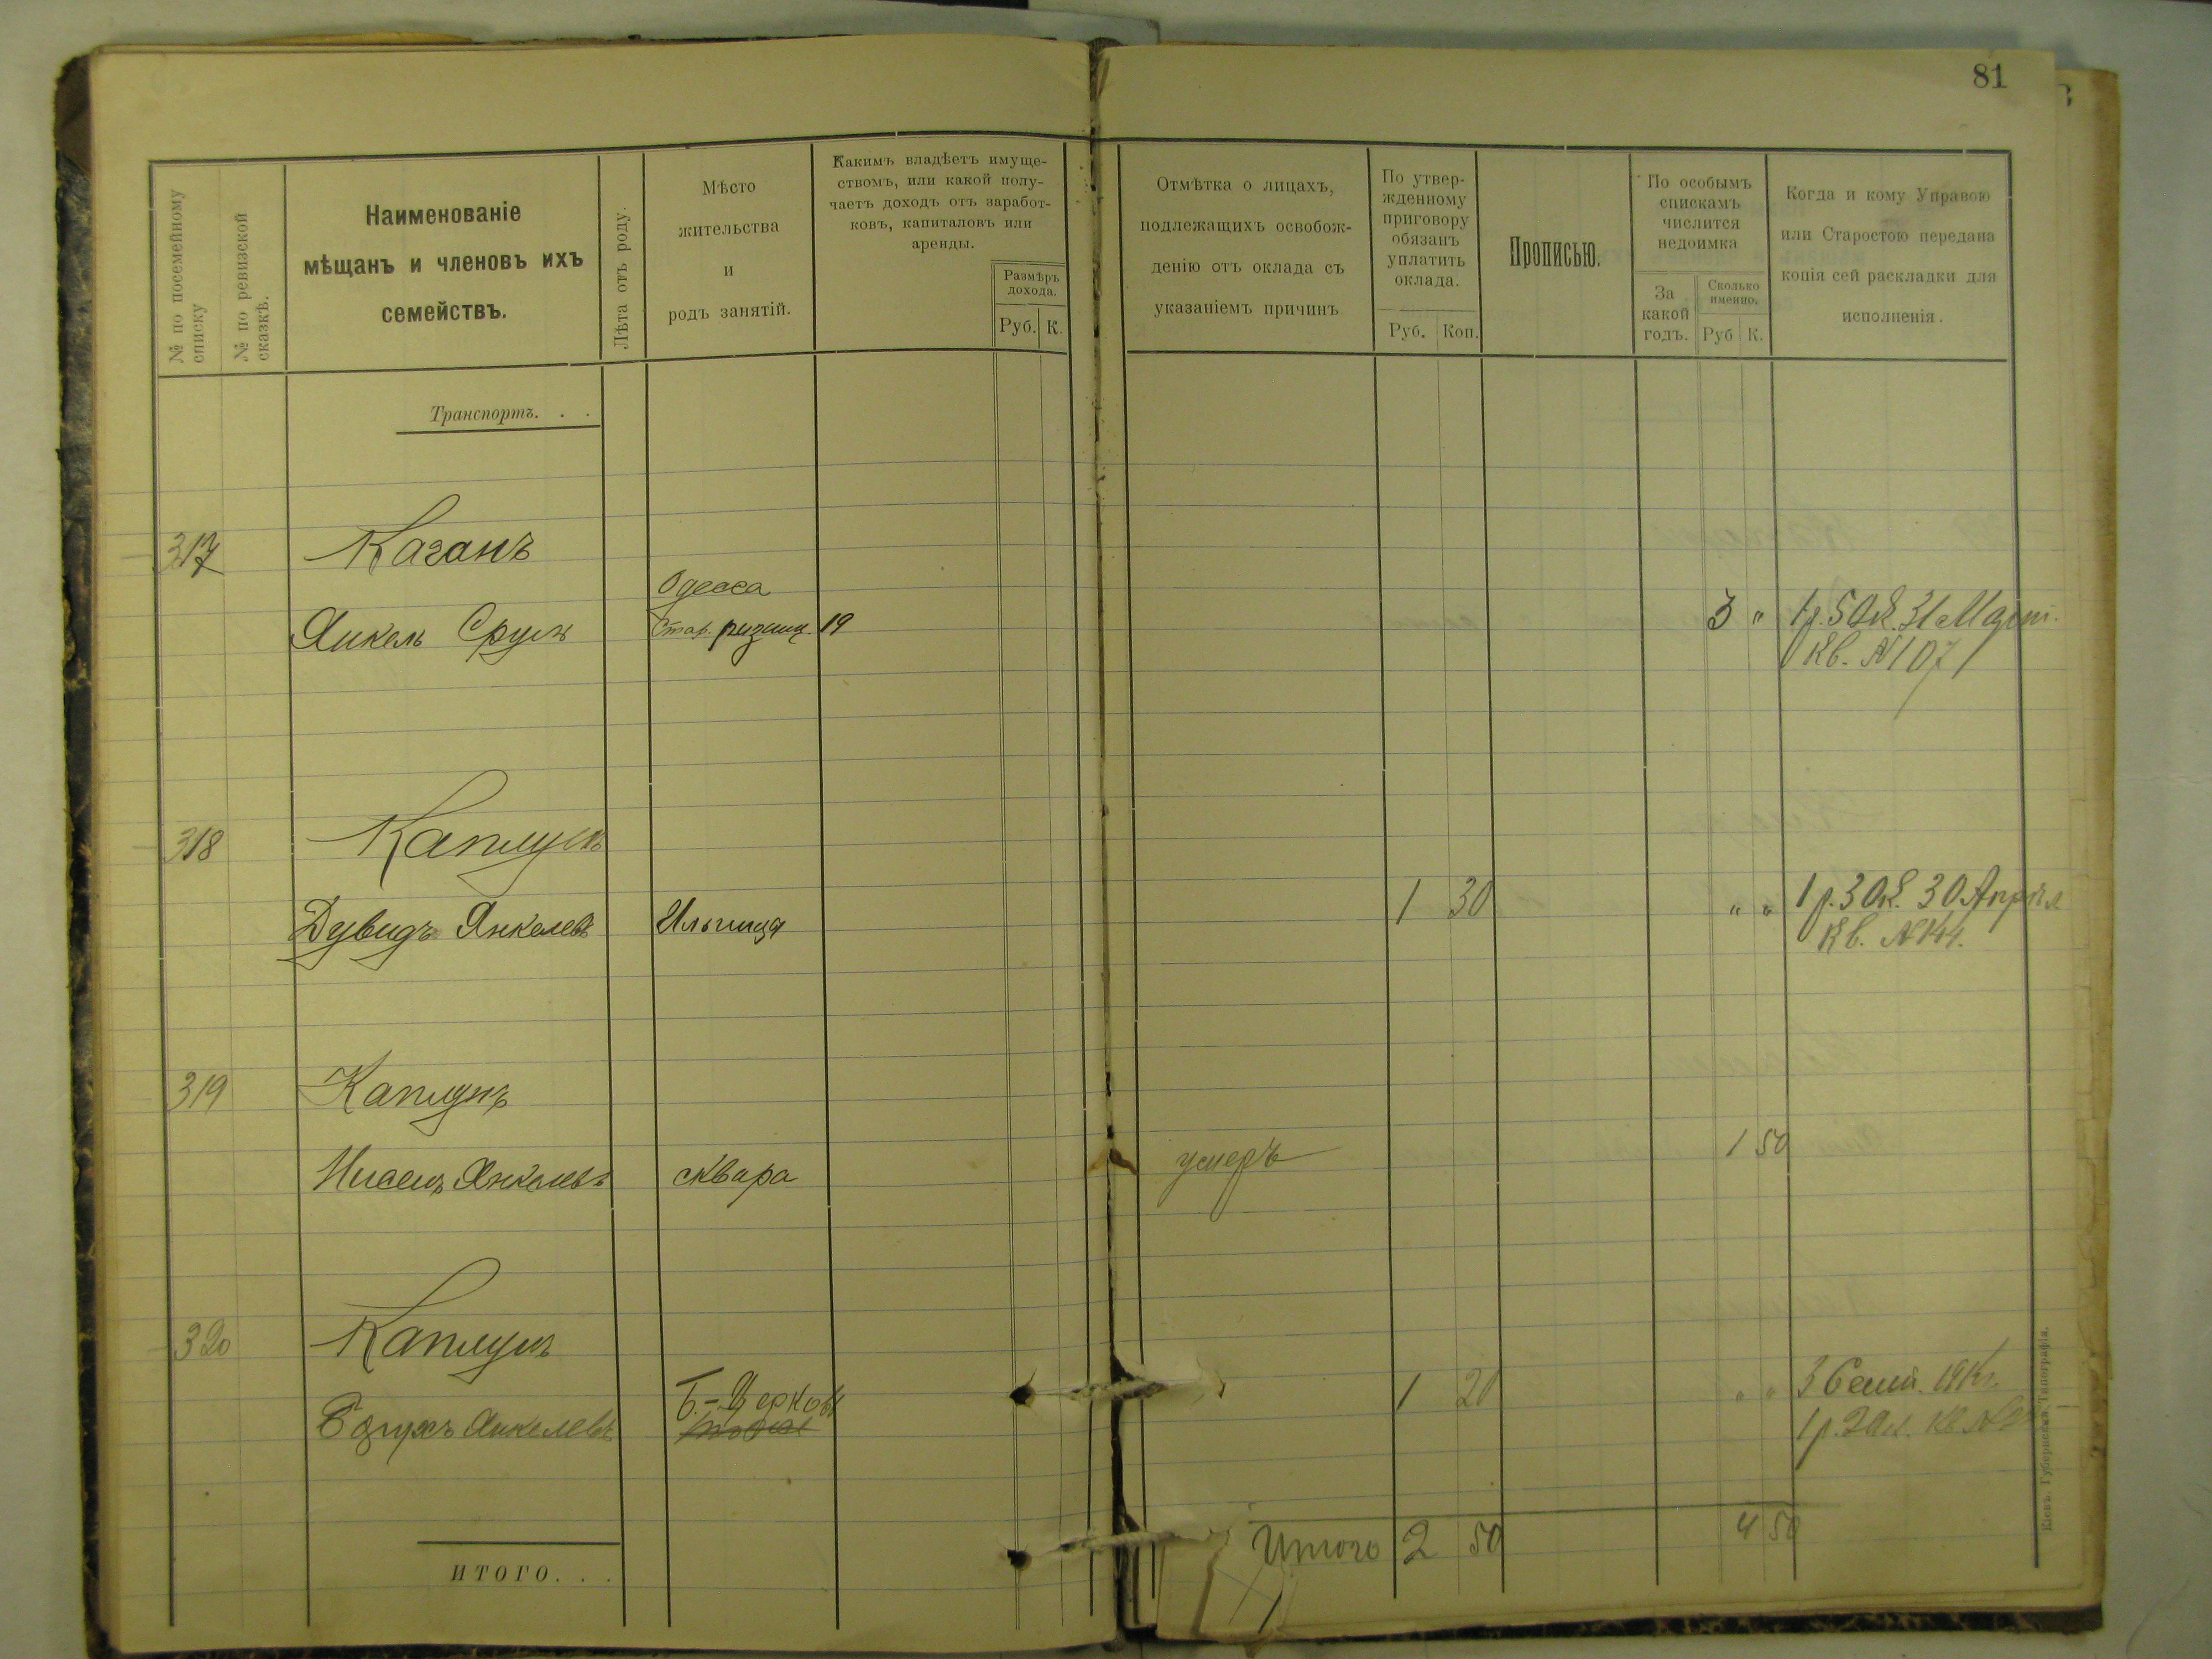 81
№ по посемейному списку
№ по ревизской сказкѣ.
Наименованіе
мѣщанъ и членовъ ихъ
семействъ.
Лѣта отъ роду.
Мѣсто
жительства
и
родъ занятій.
Какимъ владѣетъ имуще-
ствомъ, или какой полу-
чаетъ доходъ отъ заработ-
ковъ, капиталовъ или
аренды.
Размѣръ
дохода.
Руб. К.
Отмѣтка о лицахъ,
подлежащихъ освобож-
денію отъ оклада съ
указаніемъ причинъ
По утвер-
жденному
приговору
обязанъ
уплатить
оклада.
Руб. Коп.
Прописью.
По особымъ
спискамъ
числится
недоимка
За
какой
годъ.
Сколько
именно.
Руб К.
Когда и кому Управою
или Старостою передана
копія сей раскладки для
исполненія.
Транспортъ. . .
317 Каганъ
Одесса
Янкель Сруль Стар. резнич. 19 3 " 1 р. 50 к. 31 Март.
Кв. № 107
318 Каплунъ
Дувидъ Янкелевъ 1 30 " " 1 р. 30 к. 30 Апрѣл.
Кв. № 144.
319 Каплунъ
1 50
Нисенъ Янкелевъ сквара умеръ
320 Каплунъ
Б.-Церковь 1 20 " " 3 Сент.
Янкелевъ 1 р. 20 к. Кв №
Итого 2 50 4 50
ИТОГО. . .
Кіевъ. Губернская Типографія.